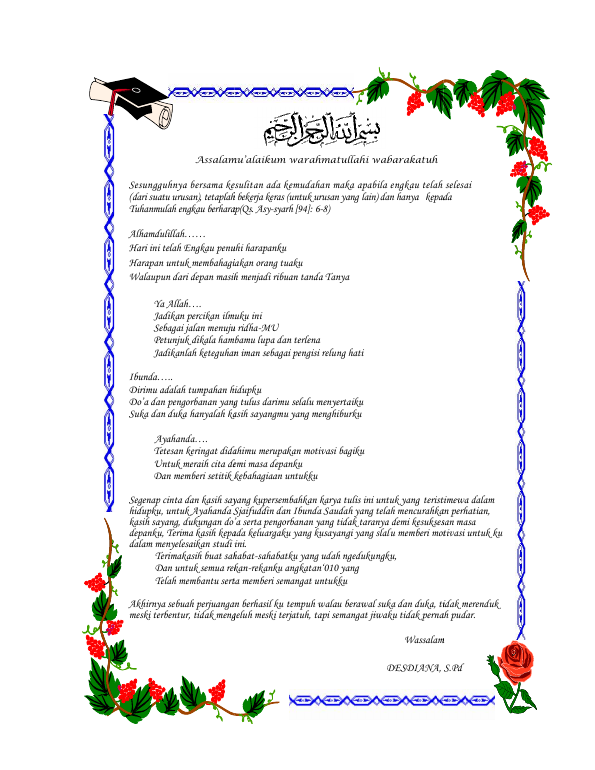 بسم الله الرحمن الرحيم
Assalamu'alaikum warahmatullahi wabarakatuh
Sesungguhnya bersama kesulitan ada kemudahan maka apabila engkau telah selesai
(dari suatu urusan), tetaplah bekerja keras (untuk urusan yang lain) dan hanya kepada
Tuhanmulah engkau berharap(Qs. Asy-syarh [94]: 6-8)
Alhamdulillah……
Hari ini telah Engkau penuhi harapanku
Harapan untuk membahagiakan orang tuaku
Walaupun dari depan masih menjadi ribuan tanda Tanya
Ya Allah….
Jadikan percikan ilmuku ini
Sebagai jalan menuju ridha-MU
Petunjuk dikala hambamu lupa dan terlena
Jadikanlah keteguhan iman sebagai pengisi relung hati
Ibunda…..
Dirimu adalah tumpahan hidupku
Do'a dan pengorbanan yang tulus darimu selalu menyertaiku
Suka dan duka hanyalah kasih sayangmu yang menghiburku
Ayahanda….
Tetesan keringat didahimu merupakan motivasi bagiku
Untuk meraih cita demi masa depanku
Dan memberi setitik kebahagiaan untukku
Segenap cinta dan kasih sayang kupersembahkan karya tulis ini untuk yang teristimewa dalam
hidupku, untuk Ayahanda Sjaifuddin dan Ibunda Saudah yang telah mencurahkan perhatian,
kasih sayang, dukungan do'a serta pengorbanan yang tidak taranya demi kesuksesan masa
depanku, Terima kasih kepada keluargaku yang kusayangi yang slalu memberi motivasi untuk ku
dalam menyelesaikan studi ini.
Terimakasih buat sahabat-sahabatku yang udah ngedukungku,
Dan untuk semua rekan-rekanku angkatan'010 yang
Telah membantu serta memberi semangat untukku
Akhirnya sebuah perjuangan berhasil ku tempuh walau berawal suka dan duka, tidak merenduk
meski terbentur, tidak mengeluh meski terjatuh, tapi semangat jiwaku tidak pernah pudar.
Wassalam
DESDIANA, S.Pd